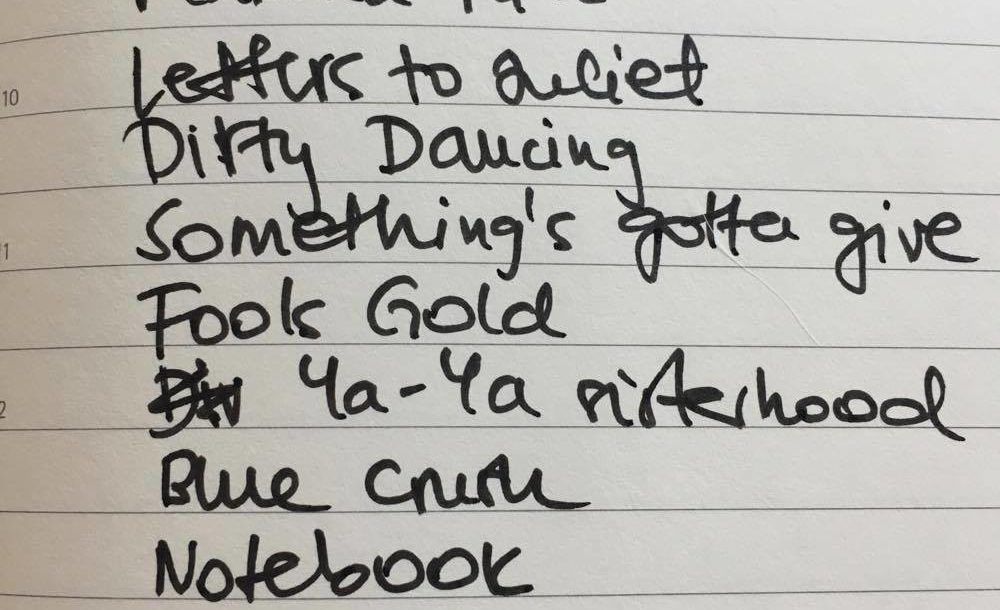 10 Letters to Juliet
Dirty Dancing
Something's gotta give
Fools Gold
Ya-Ya sisterhood
Blue Crush
Notebook